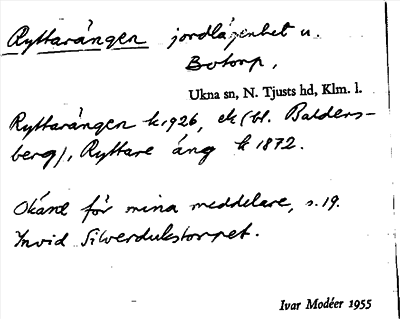 Ryttarängen jordlägenhet u.
Botorp,
Ukna sn, N. Tjusts hd, Klm. l.
Ryttarängen k 1926, ek (bl. Balders-
berg), Ryttare äng k 1872.
Okänt för mina meddelare, s. 19.
Invid Silverdukstorpet.
Ivar Modéer 1955